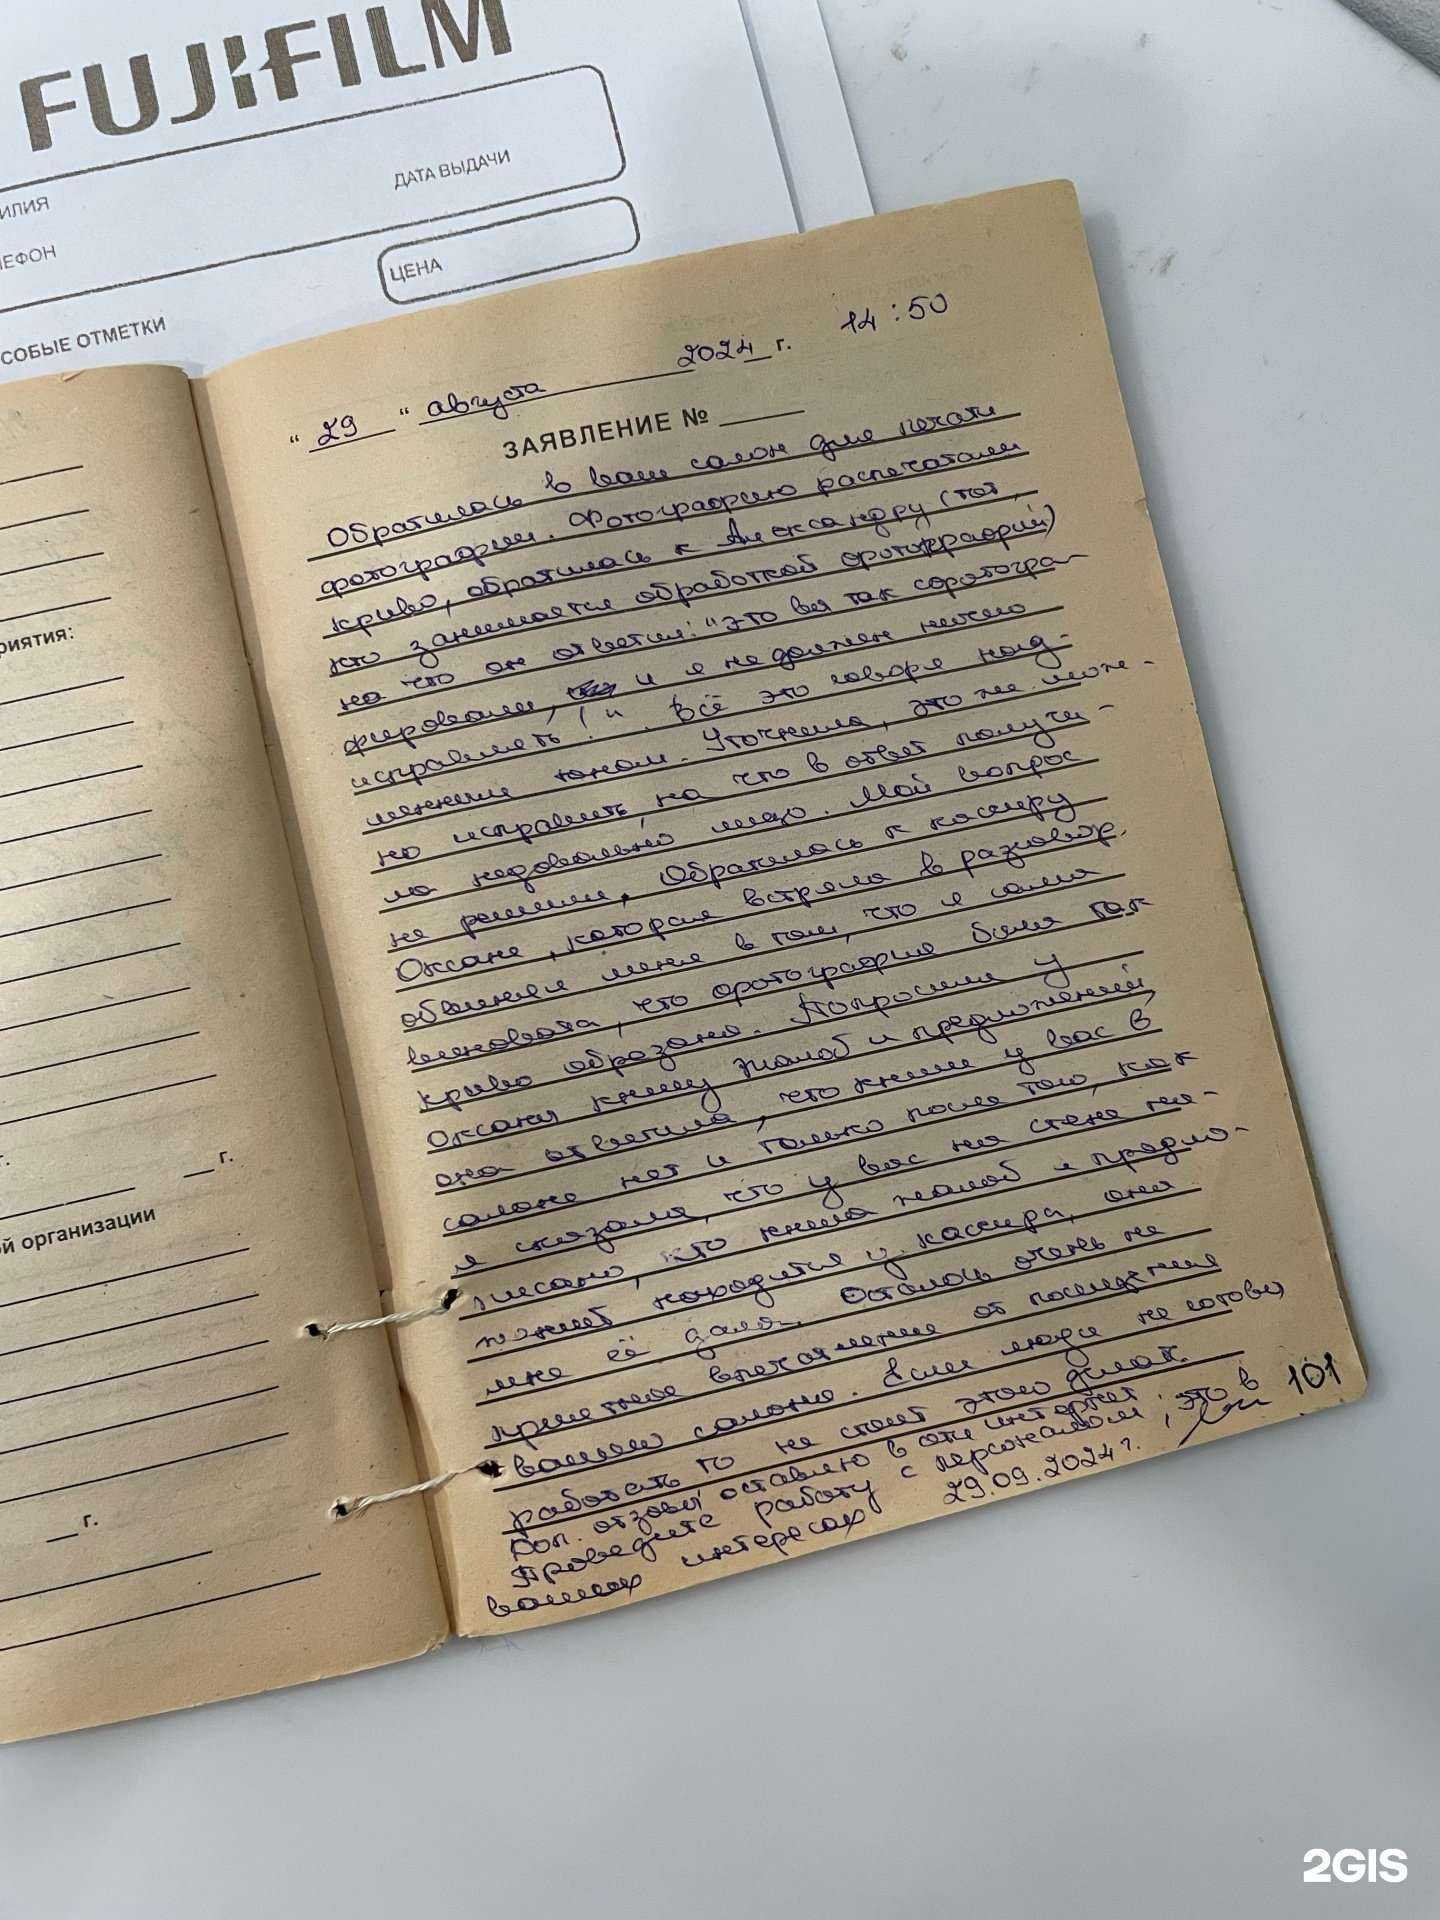 FUJIFILM
ДАТА ВЫДАЧИ
ИЛИЯ
ЛЕФОН
ЦЕНА
СОБЫЕ ОТМЕТКИ
риятия:
г.
г.
й организации
г.
14:50
" 29 " августа 2024 г.
ЗАЯВЛЕНИЕ №
Обратилась в ваш салон для печати
фотографии. Фотографию распечатали
криво, обратилась к Александру (тот,
кто занимается обработкой фотографий)
на что он ответил: "это вы так сфотогра-
фировали, и я не должен ничего
исправлять!". Всё это говоря над-
менным тоном. Уточнила, это же мож-
но исправить, на что в ответ получи-
ла недовольно лицо. Мой вопрос
не решили. Обратилась к кассиру
Оксане, которая встряла в разговор,
обвиняя меня в том, что я сама
виновата, что фотография была так
криво обрезана. Попросила у
Оксаны книгу жалоб и предложений,
она ответила, что книги у вас в
салоне нет и только после того, как
я сказала, что у вас на стене на-
писано, что книга жалоб и предло-
жений находится у кассира, она
мне её дала. Осталось очень не
приятное впечатление от посещения
вашего салона. Если люди не готовы
работать то не стоит этого делать.
Доп. отзовы оставлю в сети интернет.
Проведите работу с персоналом, это в
ваших интересах 29.09.2024 г.
101
2GIS